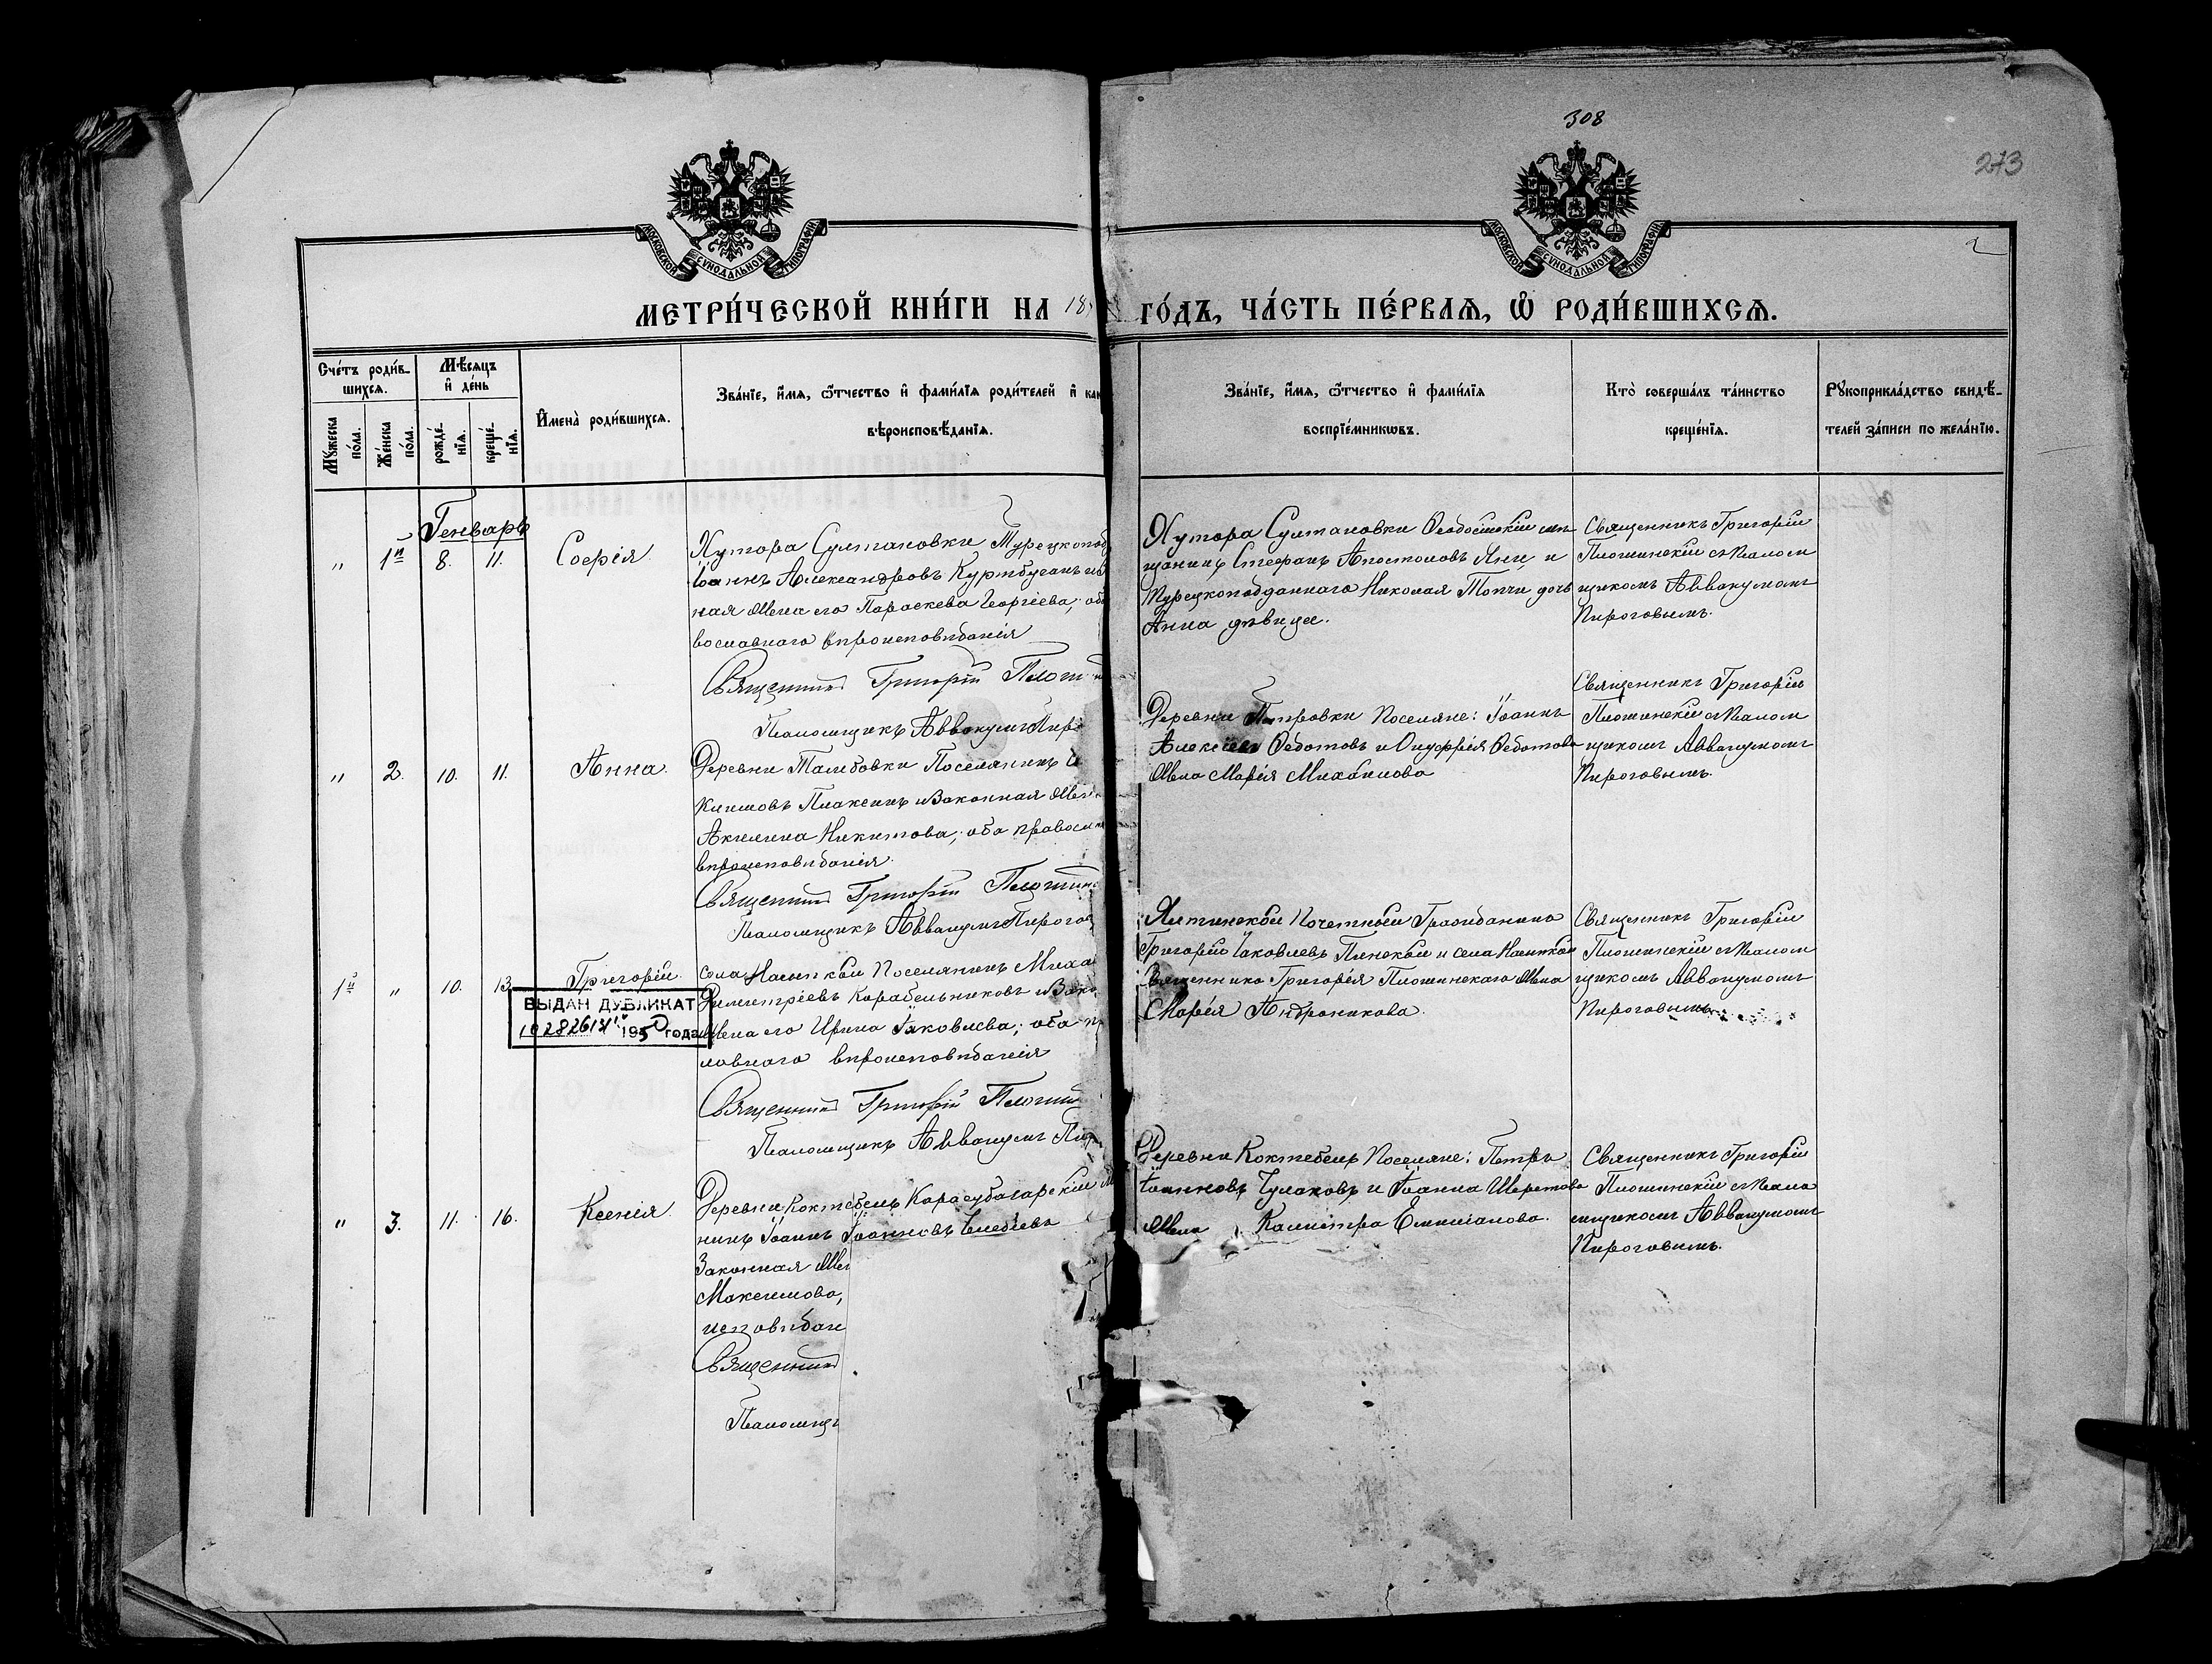 308
273
2
МОСКОВСКОЙ СѴНОДАЛЬНОЙ ТИПОГРАФІИ
МОСКОВСКОЙ СѴНОДАЛЬНОЙ ТИПОГРАФІИ
МЕТРИ́ЧЕСКОЙ КНИ́ГИ НА 18
ГО́ДЪ, ЧА́СТЬ ПЕ́РВАѦ, Ѽ РОДИ́ВШИХСѦ.
Сче́тъ роди́в-
шихсѧ.
Мꙋ́жеска по́ла.
Же́нска по́ла.
Мѣ́сѧцъ
и҆ де́нь
рожде́-
нїѧ.
креще́-
нїѧ.
И҆мена̀ роди́вшихсѧ.
Зва́нїе, и҆́мѧ, ѻ҆́тчество и҆ фами́лїѧ роди́телей и҆ как
вѣроисповѣ́данїѧ.
Зва́нїе, и҆́мѧ, ѻ҆́тчество и҆ фами́лїѧ
воспрїе́мникѡвъ.
Кто̀ соверша́лъ та́инство
креще́нїѧ.
Рꙋкоприкла́дство свидѣ́-
телей за́писи по жела́нїю.
Генварь
" 1й 8. 11. Софія
Хутора Султановки Турецкопод
Іоаннъ Александровъ Куртбуганъ
ная жена его Параскева Георгіева; оба
вославнаго вѣроисповѣданія
Священникъ Григорій Плот
Псаломщикъ Аввакумъ Пиро
Хутора Султановки Ѳеодосійскій мѣ
щанинъ Стефанъ Апостоловъ Яни, и
Турецкоподданнаго Николая Топчи дочь
Анна дѣвица.
Священникъ Григорій
Плотинскій съ Псалом
щикомъ Аввакумомъ
Пироговымъ.
" 2. 10. 11. Анна.
Деревни Тамбовки Поселянинъ
Климовъ Плаксинъ и Законная Жен
Акилина Никитова; оба правосл
вѣроисповѣданія.
Священникъ Григорій Плотин
Псаломщикъ Аввакумъ Пирогов
Деревни Петровки Поселяне: Іоаннъ
Алексіевъ Ѳедотовъ и Онуфрія Ѳедотова
Жена Марія Михайлова
Священникъ Григорій
Плотинскій съ Псалом
щикомъ Аввакумомъ
Пироговымъ.
1й " 10. 13 Григорій.
села Насыпкой Поселянинъ Миха
Димитріевъ Карабельниковъ и Зако
Жена его Ирина Іаковлева; оба п
лавнаго вѣроисповѣданія
Священникъ Григорій Плотин
Псаломщикъ Аввакумъ Пир
ВЫДАН ДУБЛИКАТ
1950 года
Ялтинской Почетный Гражданинъ
Григорій Іаковлевъ Пинской и села Насыпкой
Священника Григорія Плотинскаго Жена
Марія Андроникова.
Священникъ Григорій
Плотинскій съ Псалом
щикомъ Аввакумомъ
Пироговымъ
" 3. 11. 16. Ксенія
Деревни Коктебель Карасубазарскій м
нинъ Іоаннъ Іоанновъ
Законная Жен
Максимова,
исповѣдан
Священникъ
Псаломщи
Деревни Коктебель Поселяне: Петръ
Іоанновъ Чулаковъ и Іоанна
Жена
Священникъ Григорій
Плотинскій съ Псало
мщикомъ Аввакумомъ
Пироговымъ.